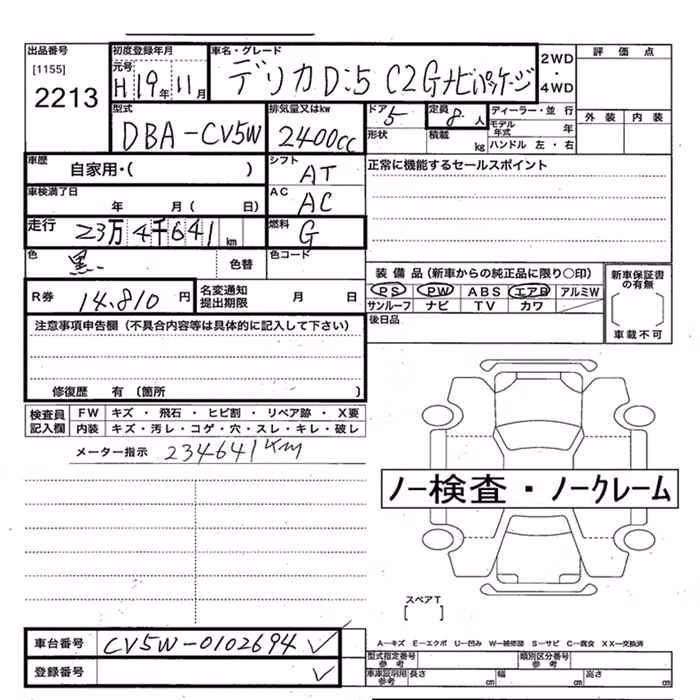 出品番号
[1155]
2213
初度登録年月
元号
H 19年 11月
車名・グレード
デリカ D:5 C2G ナビパッケージ
2WD
・
4WD
評価点
外装 内装
型式
DBA-CV5W
排気量又はkw
2400cc
ドア
5
形状
定員
8 人
積載
kg
ディーラー・並行
モデル年式 年
ハンドル 左・右
車歴
自家用・( )
シフト
AT
正常に機能するセールスポイント
車検満了日
年 月 ( 日)
AC
AC
走行
23万4千641 km
燃料
G
色
黒
色替
色コード
装備品(新車からの純正品に限り○印)
PS PW ABS エアB アルミW
サンルーフ ナビ TV カワ
新車保証書の有無
[ ]
車載不可
R券
14.810 円
名変通知提出期限
月 日
後日品
注意事項申告欄(不具合内容等は具体的に記入して下さい)
修復歴 有 (箇所 )
検査員記入欄
FW キズ・飛石・ヒビ割・リペア跡・X要
内装 キズ・汚レ・コゲ・穴・スレ・キレ・破レ
メーター指示 234641KM
ノー検査・ノークレーム
スペアT
[ ]
車台番号
CV5W-0102694 ✓
登録番号
✓
A−キズ E−エクボ U−凹み W−補修跡 S−サビ C−腐食 XX−交換済
型式指定番号
参考
類別区分番号
参考
車庫証明用
参考
長さ cm 幅 cm 高さ cm